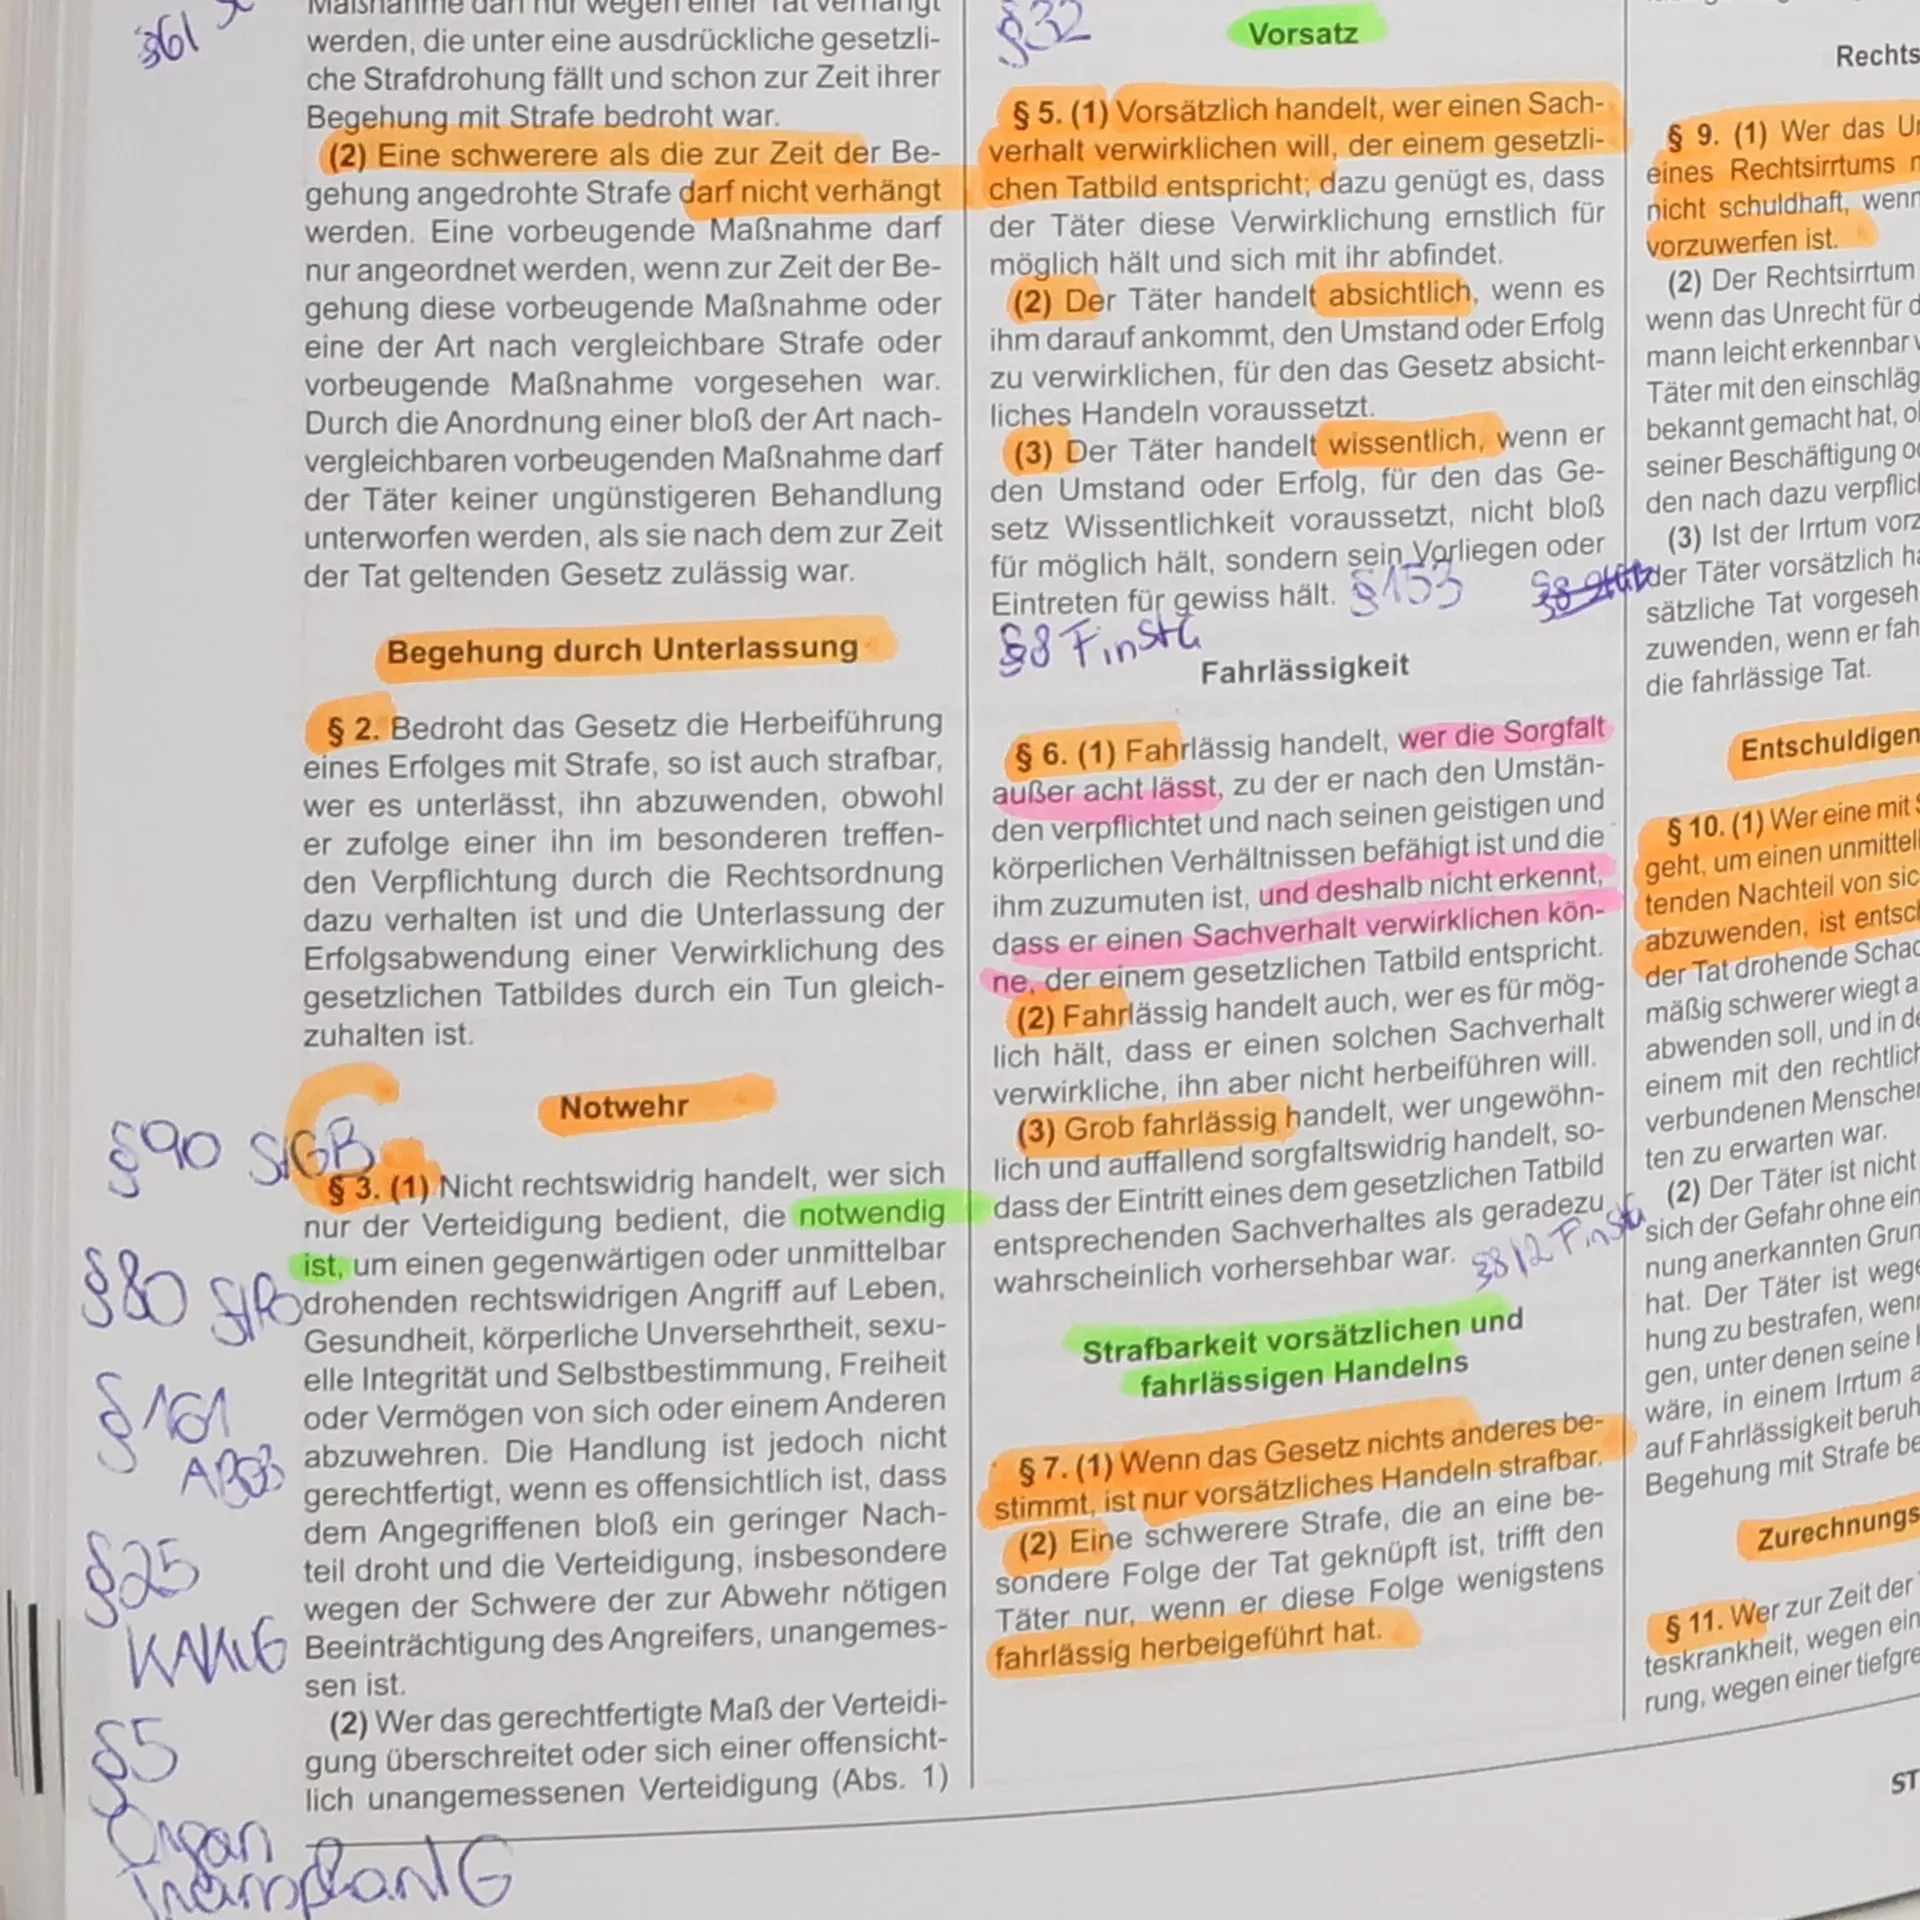 §61
werden, die unter eine ausdrückliche gesetzli-
che Strafdrohung fällt und schon zur Zeit ihrer
Begehung mit Strafe bedroht war.
(2) Eine schwerere als die zur Zeit der Be-
gehung angedrohte Strafe darf nicht verhängt
werden. Eine vorbeugende Maßnahme darf
nur angeordnet werden, wenn zur Zeit der Be-
gehung diese vorbeugende Maßnahme oder
eine der Art nach vergleichbare Strafe oder
vorbeugende Maßnahme vorgesehen war.
Durch die Anordnung einer bloß der Art nach-
vergleichbaren vorbeugenden Maßnahme darf
der Täter keiner ungünstigeren Behandlung
unterworfen werden, als sie nach dem zur Zeit
der Tat geltenden Gesetz zulässig war.
Begehung durch Unterlassung
§ 2. Bedroht das Gesetz die Herbeiführung
eines Erfolges mit Strafe, so ist auch strafbar,
wer es unterlässt, ihn abzuwenden, obwohl
er zufolge einer ihn im besonderen treffen-
den Verpflichtung durch die Rechtsordnung
dazu verhalten ist und die Unterlassung der
Erfolgsabwendung einer Verwirklichung des
gesetzlichen Tatbildes durch ein Tun gleich-
zuhalten ist.
Notwehr
§ 3. (1) Nicht rechtswidrig handelt, wer sich
nur der Verteidigung bedient, die notwendig
ist, um einen gegenwärtigen oder unmittelbar
drohenden rechtswidrigen Angriff auf Leben,
Gesundheit, körperliche Unversehrtheit, sexu-
elle Integrität und Selbstbestimmung, Freiheit
oder Vermögen von sich oder einem Anderen
abzuwehren. Die Handlung ist jedoch nicht
gerechtfertigt, wenn es offensichtlich ist, dass
dem Angegriffenen bloß ein geringer Nach-
teil droht und die Verteidigung, insbesondere
wegen der Schwere der zur Abwehr nötigen
Beeinträchtigung des Angreifers, unangemes-
sen ist.
(2) Wer das gerechtfertigte Maß der Verteidi-
gung überschreitet oder sich einer offensicht-
lich unangemessenen Verteidigung (Abs. 1)
§90 StGB
§80 StPO
§161
ABGB
§25
KAKUG
§5
Organ
transplantG
§32
Vorsatz
§ 5. (1) Vorsätzlich handelt, wer einen Sach-
verhalt verwirklichen will, der einem gesetzli-
chen Tatbild entspricht; dazu genügt es, dass
der Täter diese Verwirklichung ernstlich für
möglich hält und sich mit ihr abfindet.
(2) Der Täter handelt absichtlich, wenn es
ihm darauf ankommt, den Umstand oder Erfolg
zu verwirklichen, für den das Gesetz absicht-
liches Handeln voraussetzt.
(3) Der Täter handelt wissentlich, wenn er
den Umstand oder Erfolg, für den das Ge-
setz Wissentlichkeit voraussetzt, nicht bloß
für möglich hält, sondern sein Vorliegen oder
Eintreten für gewiss hält. §153
§8 FinStG
Fahrlässigkeit
§ 6. (1) Fahrlässig handelt, wer die Sorgfalt
außer acht lässt, zu der er nach den Umstän-
den verpflichtet und nach seinen geistigen und
körperlichen Verhältnissen befähigt ist und die
ihm zuzumuten ist, und deshalb nicht erkennt,
dass er einen Sachverhalt verwirklichen kön-
ne, der einem gesetzlichen Tatbild entspricht.
(2) Fahrlässig handelt auch, wer es für mög-
lich hält, dass er einen solchen Sachverhalt
verwirkliche, ihn aber nicht herbeiführen will.
(3) Grob fahrlässig handelt, wer ungewöhn-
lich und auffallend sorgfaltswidrig handelt, so-
dass der Eintritt eines dem gesetzlichen Tatbild
entsprechenden Sachverhaltes als geradezu
wahrscheinlich vorhersehbar war. §8/2 FinStG
Strafbarkeit vorsätzlichen und
fahrlässigen Handelns
§ 7. (1) Wenn das Gesetz nichts anderes be-
stimmt, ist nur vorsätzliches Handeln strafbar.
(2) Eine schwerere Strafe, die an eine be-
sondere Folge der Tat geknüpft ist, trifft den
Täter nur, wenn er diese Folge wenigstens
fahrlässig herbeigeführt hat.
Rechts
§ 9. (1) Wer das
eines Rechtsirrtums
nicht schuldhaft, wenn
vorzuwerfen ist.
(2) Der Rechtsirrtum
wenn das Unrecht für
mann leicht erkennbar
Täter mit den einschläg
bekannt gemacht hat,
seiner Beschäftigung
den nach dazu verpflic
(3) Ist der Irrtum vorz
der Täter vorsätzlich
sätzliche Tat vorgeseh
zuwenden, wenn er fah
die fahrlässige Tat.
Entschuldigen
§ 10. (1) Wer eine mit
geht, um einen unmittel
tenden Nachteil von sic
abzuwenden, ist entsc
der Tat drohende Schad
mäßig schwerer wiegt a
abwenden soll, und in
einem mit den rechtlich
verbundenen Menschen
ten zu erwarten war.
(2) Der Täter ist nicht
sich der Gefahr ohne ein
nung anerkannten Grun
hat. Der Täter ist wege
hung zu bestrafen, wenn
gen, unter denen seine
wäre, in einem Irrtum
auf Fahrlässigkeit beruh
Begehung mit Strafe be
Zurechnungs
§ 11. Wer zur Zeit der
teskrankheit, wegen ein
rung, wegen einer tiefgre
ST